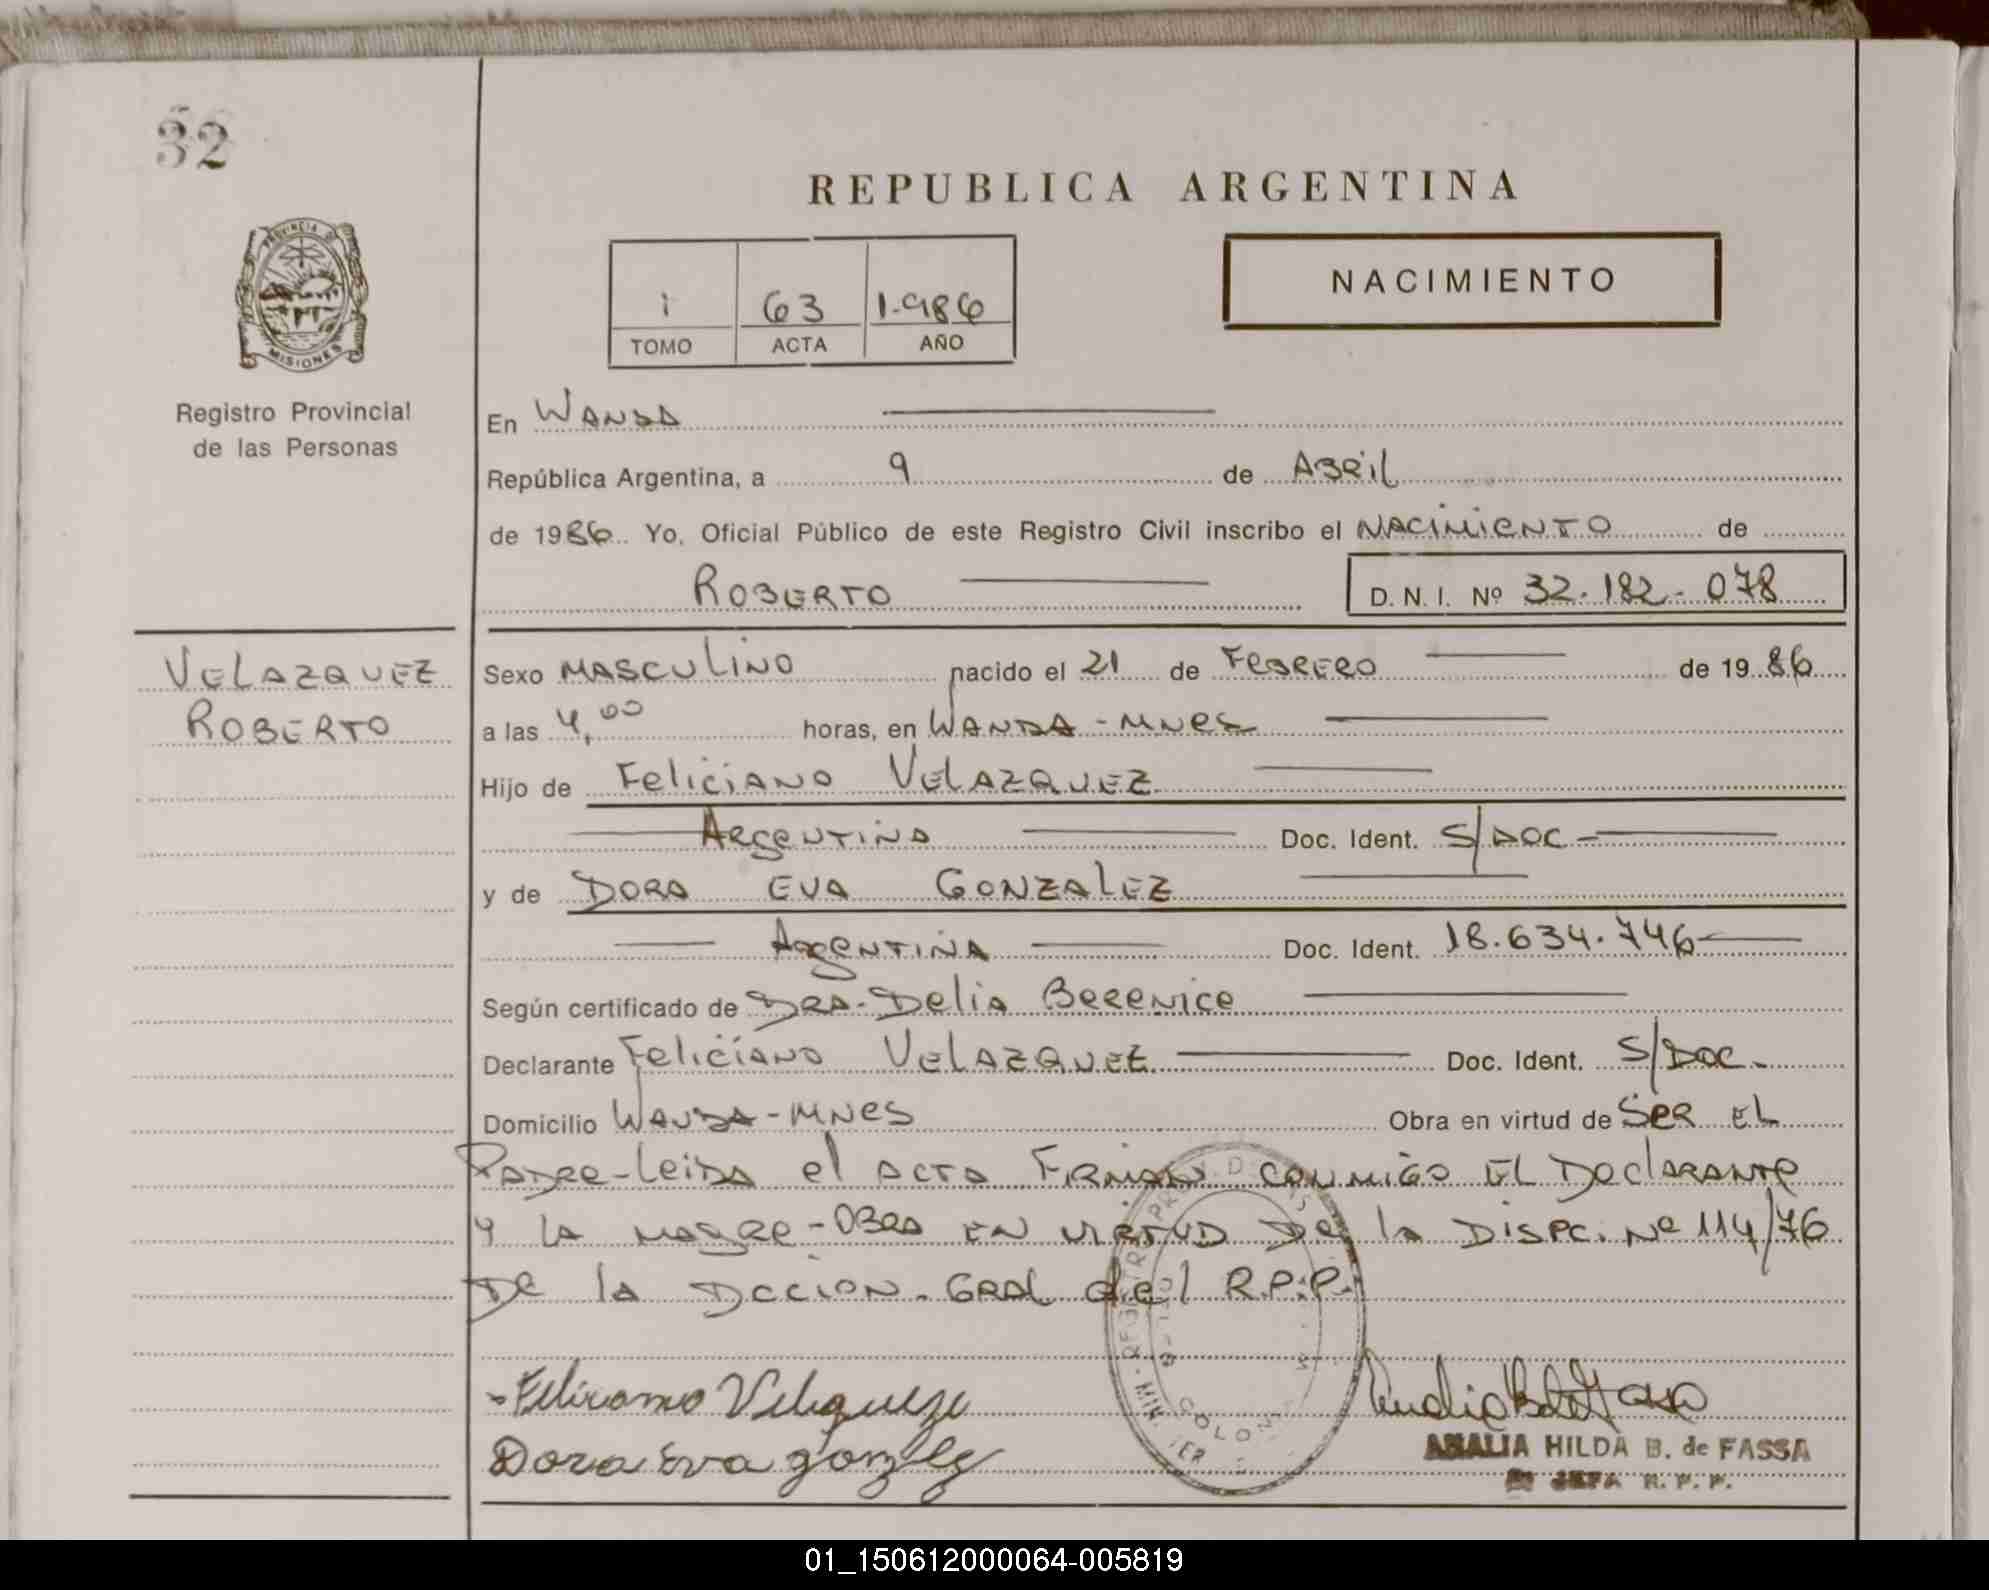 32
REPUBLICA ARGENTINA
PROVINCIA D MISIONES
1 63 1.986
TOMO ACTA AÑO
NACIMIENTO
Registro Provincial
de las Personas
En WANDA
República Argentina, a 9 de ABRIL
de 1986 Yo, Oficial Público de este Registro Civil inscribo el NACIMIENTO de
ROBERTO D. N. I. Nº 32.182.078
VELAZQUEZ
ROBERTO
Sexo MASCULINO nacido el 21 de FEBRERO de 1986
a las 4,00 horas, en WANDA - MNES
Hijo de FELICIANO VELAZQUEZ
ARGENTINA Doc. Ident. S/DOC-
y de DORA EVA GONZALEZ
ARGENTINA Doc. Ident. 18.634.746
Según certificado de DRA. DELIA BERENICE
Declarante FELICIANO VELAZQUEZ Doc. Ident. S/DOC.
Domicilio WANDA - MNES Obra en virtud de SER EL
PADRE - LEIDA el ACTA FIRMAN CONMIGO EL DECLARANTE
Y LA MADRE - OBRA EN VIRTUD DE LA DISPC. Nº 114/76
DE LA DCCION. GRAL del R.P.P.
Feliciano Velazquez
Dora Eva gonzlez
AMALIA HILDA B. de FASSA
JEFA R. P. P.
01_150612000064-005819